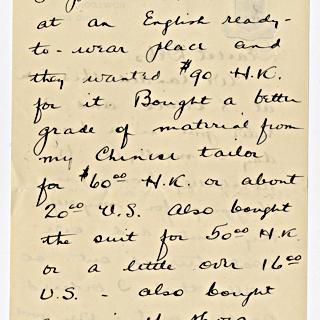 at an English ready-
to-wear place and
they wanted $90 H.K.
for it. Bought a better
grade of material from
my Chinese tailor
for $60⁰⁰ H.K. or about
20⁰⁰ U.S. Also bought
the suit for 50⁰⁰ H.K.
or a little over 16⁰⁰
U.S. - also bought